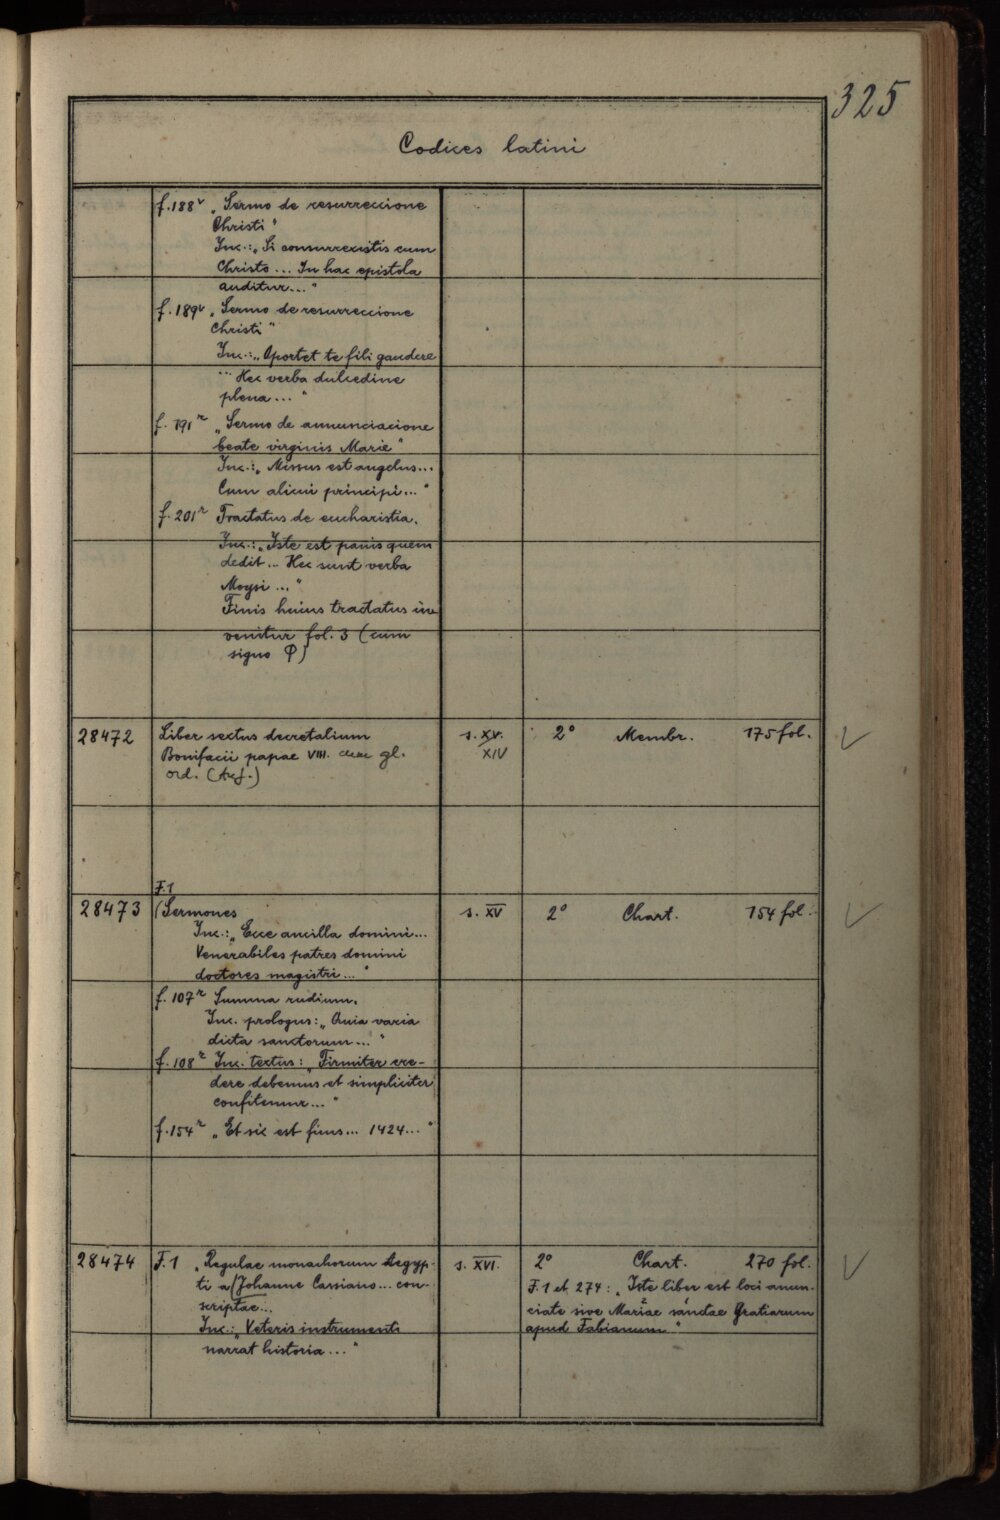 325
Codices latini
f. 188v „Sermo de resurreccione
Christi"
Inc.: „Si consurrexistis cum
Christo ... In hac epistola
auditur..."
f. 189v „Sermo de resurreccione
Christi"
Inc.: „Oportet te fili gaudere
... Hec verba dulcedine
plena..."
f. 191r „Sermo de annunciacione
beate virginis Marie"
Inc.: „Missus est angelus...
Cum alicui principi..."
f. 201r Tractatus de eucharistia.
Inc.: „Iste est panis quem
dedit ... Hec sunt verba
Moysi ..."
Finis huius tractatus in-
venitur fol. 3 (cum
signo Φ)
28472 Liber sextus decretalium s. XV. 2° Membr. 175 fol. ✓
Bonifacii papae VIII. cum gl. XIV
ord. (Auf.)
F. 1
28473 (Sermones s. XV 2° Chart. 154 fol. ✓
Inc.: „Ecce ancilla domini...
Venerabiles patres domini
doctores magistri ..."
f. 107r Summa rudium.
Inc. prologus: „Quia varia
dicta sanctorum..."
f. 108r Inc. textus: „Firmiter cre-
dere debemus et simpliciter
confitemur..."
f. 154r „Et sic est finis... 1424..."
28474 F. 1 „Regulae monachorum Aegyp- s. XVI. 2° Chart. 270 fol. ✓
ti a (Johanne Cassiano... con-
scriptae...
Inc.: „Veteris instrumenti
narrat historia ..."
F. 1 et 274: „Iste liber est loci anun-
ciate sive Mariae sanctae Gratiarum
apud Fabianum"